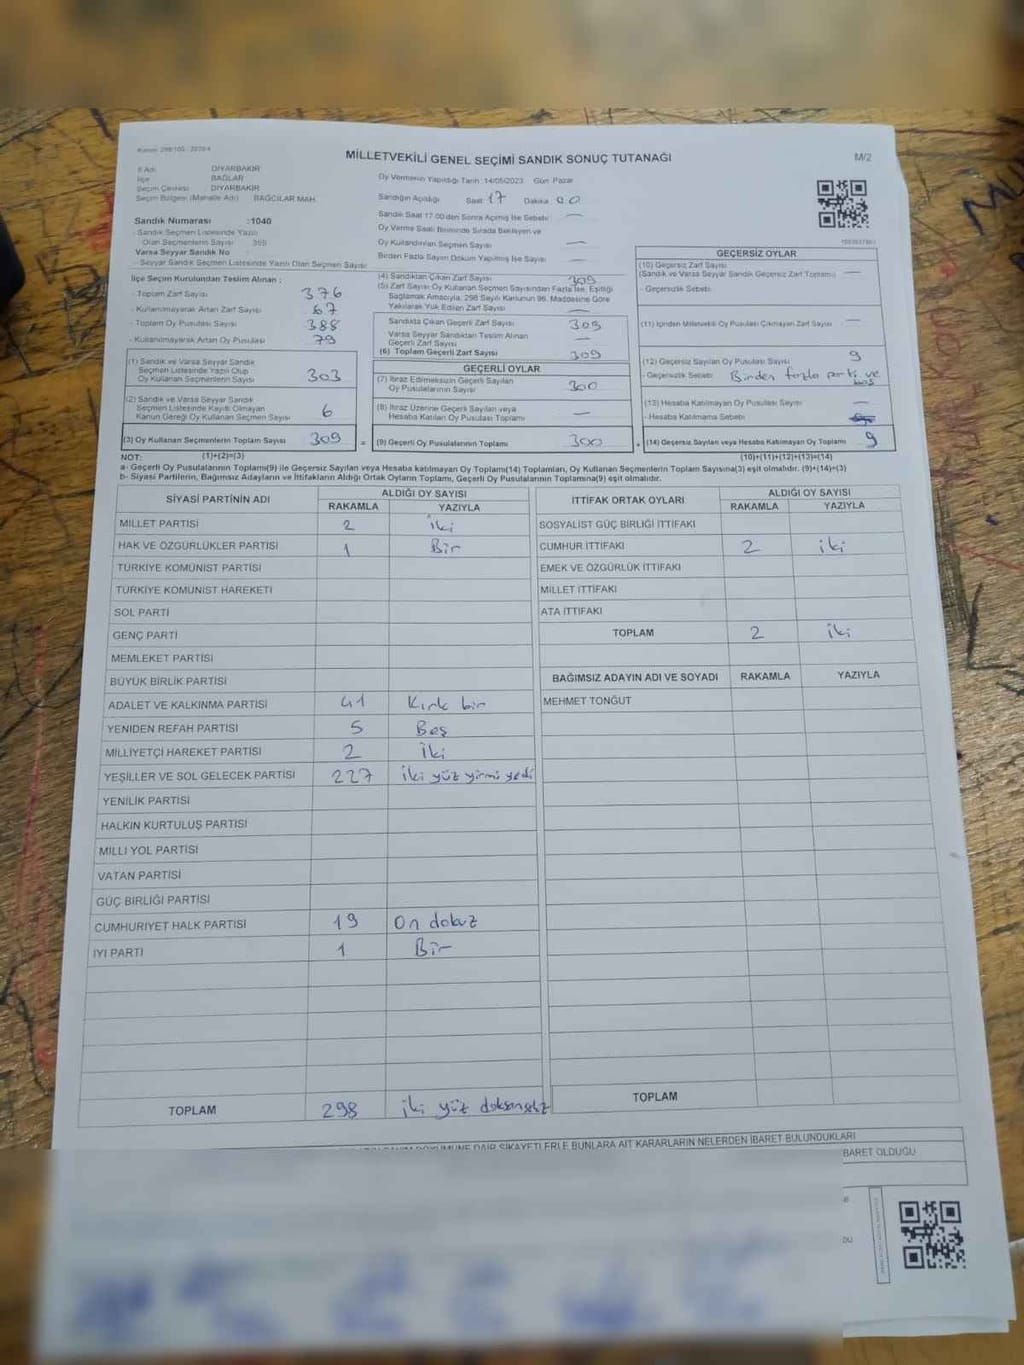 MİLLETVEKİLİ GENEL SEÇİMİ SANDIK SONUÇ TUTANAĞI
M/2
İl Adı DİYARBAKIR
İlçe BAĞLAR
Seçim Çevresi DİYARBAKIR
Seçim Bölgesi (Mahalle Adı) BAĞCILAR MAH.
Sandık Numarası :1040
Sandık Seçmen Listesinde Yazılı
Olan Seçmenlerin Sayısı
Varsa Seyyar Sandık No
Seyyar Sandık Seçmen Listesinde Yazılı Olan Seçmen Sayısı
Oy Vermenin Yapıldığı Tarih : 14/05/2023 Gün: Pazar
Sandığın Açıldığı Saat 17 Dakika 00
Sandık Saat 17.00'den Sonra Açılmış İse Sebebi —
Oy Verme Saati Bitiminde Sırada Bekleyen ve
Oy Kullandırılan Seçmen Sayısı —
Birden Fazla Sayım Döküm Yapılmış İse Sayısı —
İlçe Seçim Kurulundan Teslim Alınan :
- Toplam Zarf Sayısı 376
- Kullanılmayarak Artan Zarf Sayısı 67
- Toplam Oy Pusulası Sayısı 388
- Kullanılmayarak Artan Oy Pusulası 79
(1) Sandık ve Varsa Seyyar Sandık
Seçmen Listesinde Yazılı Olup
Oy Kullanan Seçmenlerin Sayısı 303
(2) Sandık ve Varsa Seyyar Sandık
Seçmen Listesinde Kayıtlı Olmayan
Kanun Gereği Oy Kullanan Seçmen Sayısı 6
(3) Oy Kullanan Seçmenlerin Toplam Sayısı 309
(4) Sandıktan Çıkan Zarf Sayısı 309
(5) Zarf Sayısı Oy Kullanan Seçmen Sayısından Fazla İse, Eşitliği
Sağlamak Amacıyla, 298 Sayılı Kanunun 98. Maddesine Göre
Yakılarak Yok Edilen Zarf Sayısı —
Sandıkta Çıkan Geçerli Zarf Sayısı 309
Varsa Seyyar Sandıktan Teslim Alınan
Geçerli Zarf Sayısı —
(6) Toplam Geçerli Zarf Sayısı 309
GEÇERLİ OYLAR
(7) İtiraz Edilmeksizin Geçerli Sayılan
Oy Pusulalarının Sayısı 300
(8) İtiraz Üzerine Geçerli Sayılan veya
Hesaba Katılan Oy Pusulası Toplamı —
= (9) Geçerli Oy Pusulalarının Toplamı 300
GEÇERSİZ OYLAR
(10) Geçersiz Zarf Sayısı
(Sandık ve Varsa Seyyar Sandık Geçersiz Zarf Toplamı) —
- Geçersizlik Sebebi
(11) İçinden Milletvekili Oy Pusulası Çıkmayan Zarf Sayısı —
(12) Geçersiz Sayılan Oy Pusulası Sayısı 9
- Geçersizlik Sebebi Birden fazla parti ve
(13) Hesaba Katılmayan Oy Pusulası Sayısı —
- Hesaba Katılmama Sebebi
(14) Geçersiz Sayılan veya Hesaba Katılmayan Oy Toplamı 9
NOT: (1)+(2)=(3) (10)+(11)+(12)+(13)=(14)
a- Geçerli Oy Pusulalarının Toplamı(9) ile Geçersiz Sayılan veya Hesaba katılmayan Oy Toplamı(14) Toplamları, Oy Kullanan Seçmenlerin Toplam Sayısına(3) eşit olmalıdır. (9)+(14)=(3)
b- Siyasi Partilerin, Bağımsız Adayların ve İttifakların Aldığı Ortak Oyların Toplamı, Geçerli Oy Pusulalarının Toplamına(9) eşit olmalıdır.
SİYASİ PARTİNİN ADI ALDIĞI OY SAYISI
RAKAMLA YAZIYLA
MİLLET PARTİSİ 2 iki
HAK VE ÖZGÜRLÜKLER PARTİSİ 1 Bir
TÜRKİYE KOMÜNİST PARTİSİ
TÜRKİYE KOMÜNİST HAREKETİ
SOL PARTİ
GENÇ PARTİ
MEMLEKET PARTİSİ
BÜYÜK BİRLİK PARTİSİ
ADALET VE KALKINMA PARTİSİ 41 Kırk bir
YENİDEN REFAH PARTİSİ 5 Beş
MİLLİYETÇİ HAREKET PARTİSİ 2 İki
YEŞİLLER VE SOL GELECEK PARTİSİ 227 iki yüz yirmi yedi
YENİLİK PARTİSİ
HALKIN KURTULUŞ PARTİSİ
MİLLİ YOL PARTİSİ
VATAN PARTİSİ
GÜÇ BİRLİĞİ PARTİSİ
CUMHURİYET HALK PARTİSİ 19 On dokuz
İYİ PARTİ 1 Bir
TOPLAM 298 iki yüz doksansekiz
İTTİFAK ORTAK OYLARI ALDIĞI OY SAYISI
RAKAMLA YAZIYLA
SOSYALİST GÜÇ BİRLİĞİ İTTİFAKI
CUMHUR İTTİFAKI 2 iki
EMEK VE ÖZGÜRLÜK İTTİFAKI
MİLLET İTTİFAKI
ATA İTTİFAKI
TOPLAM 2 iki
BAĞIMSIZ ADAYIN ADI VE SOYADI RAKAMLA YAZIYLA
MEHMET TONĞUT
TOPLAM
DÖKÜMÜNE DAİR ŞİKAYETLERLE BUNLARA AİT KARARLARIN NELERDEN İBARET BULUNDUKLARI
BARET OLDUĞU